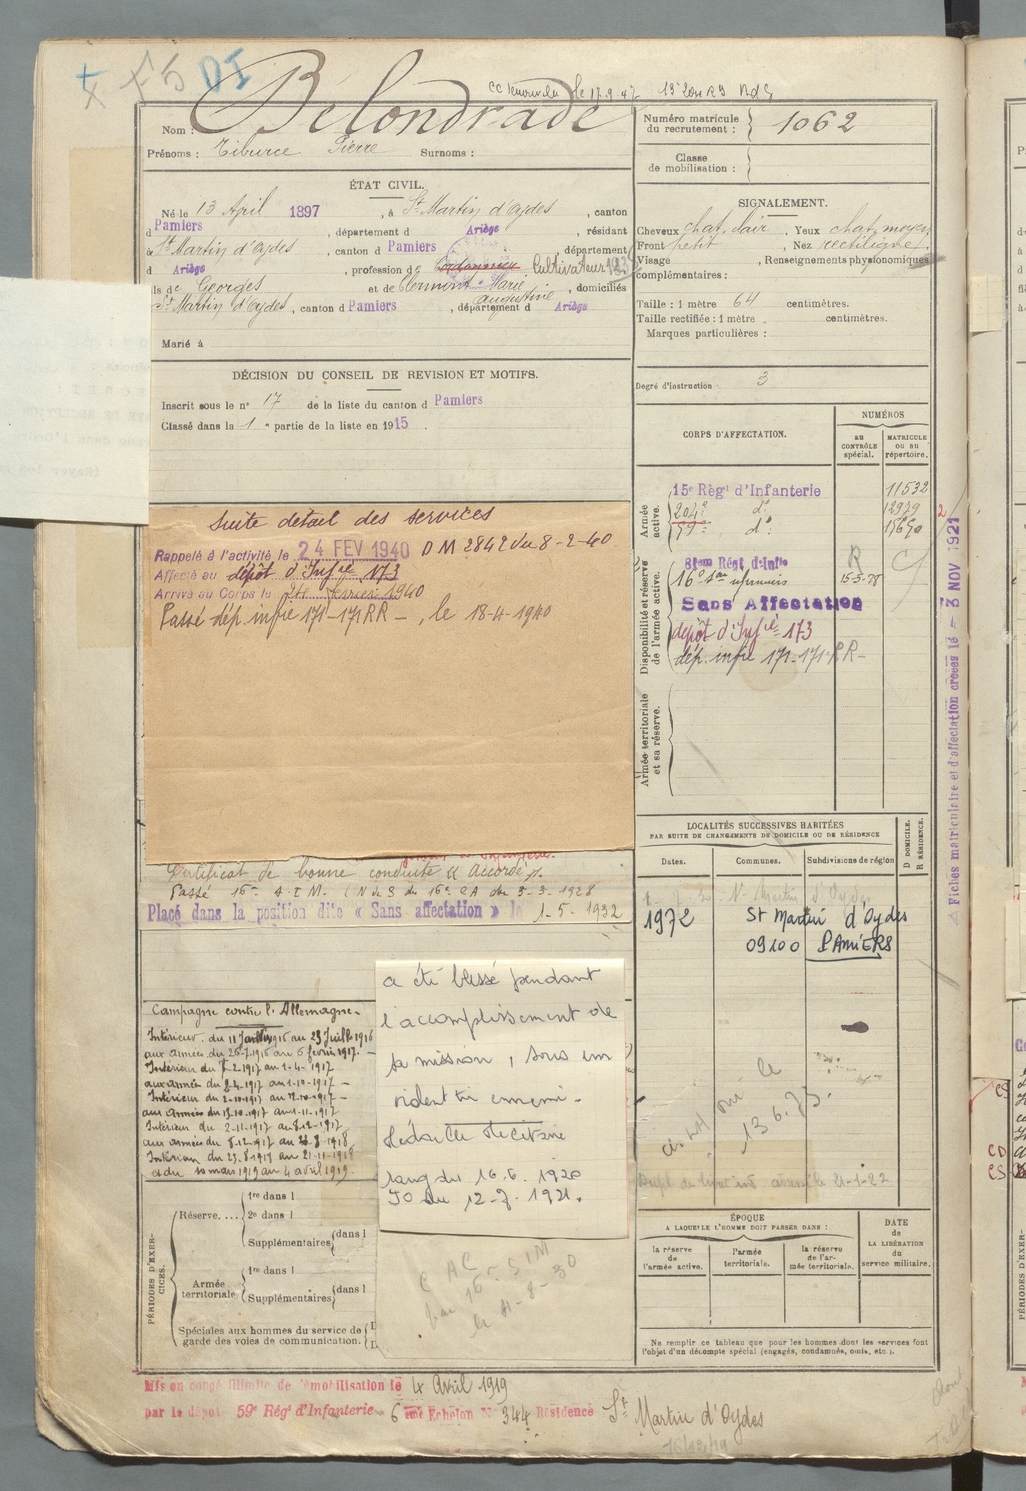 + x F5 DI
19e
Nom : Belondrade
Prénoms : Tiburce Pierre Surnoms :
Numéro matricule du recrutement : 1062
Classe de mobilisation :
ÉTAT CIVIL.
Né le 13 April 1897, à St Martin d'Oydes, canton
d Pamiers, département d Ariège, résidant
à St Martin d'Oydes, canton d Pamiers, département
d Ariège, profession de Cordonnier Cultivateur
fils de Georges et de Clermont Marie Augustine, domiciliés
St Martin d'Oydes, canton d Pamiers, département d Ariège
Marié à
SIGNALEMENT.
Cheveux chat. clair, Yeux chat. moyen
Front petit, Nez rectiligne
Visage , Renseignements physionomiques
complémentaires :
Taille : 1 mètre 64 centimètres.
Taille rectifiée : 1 mètre centimètres.
Marques particulières :
Degré d'instruction 3
DÉCISION DU CONSEIL DE REVISION ET MOTIFS.
Inscrit sous le n° 17 de la liste du canton d Pamiers
Classé dans la 1e partie de la liste en 1915.
CORPS D'AFFECTATION.
NUMÉROS
au CONTRÔLE spécial.
MATRICULE ou au répertoire.
Armée active.
15e Régt d'Infanterie 11532
204e do 12979
59e do 15670
Disponibilité et réserve de l'armée active.
81em Régt d'Infie
16e son infirmiers 15-3-28
Sans Affectation
dépôt d'Infie 173
dép. infie 171-171 RR-
Armée territoriale et sa réserve.
Fiches matriculaire et d'affectation créées le - 3 NOV 1921
Suite détail des services
Rappelé à l'activité le 24 FEV 1940 DM 2842 du 8-2-40
Affecté au dépôt d'Infie 173
Arrivé au Corps le 24 février 1940
Passé dép. infie 171-171 RR -, le 18-4-1940
Certificat de bonne conduite « Accordé ».
Passé 16e S.I.M. (N de S du 16e CA du 3-3-1928
Placé dans la position dite « Sans affectation » le 1-5-1932
LOCALITÉS SUCCESSIVES HABITÉES
PAR SUITE DE CHANGEMENTS DE DOMICILE OU DE RÉSIDENCE
Dates. Communes. Subdivisions de région D DOMICILE. R RÉSIDENCE.
St Martin d'Oydes
1972 St Martin d'Oydes
09100 PAMIERS
13.6.73.
Campagne contre l'Allemagne
Intérieur du 11 Janvier 1916 au 23 Juillet 1916
aux armées du 26-7-1916 au 6 février 1917.
Intérieur du 7-2-1917 au 1-4-1917
aux armées du 2-4-1917 au 1-10-1917
Intérieur du 2-10-1917 au
aux armées du 13-10-1917 au 1-11-1917
Intérieur du 2-11-1917 au 8-12-1917
aux armées du 8-12-1917 au
Intérieur du au 21-11-1918
et du 10 mars 1919 au 4 avril 1919.
a été blessé pendant
l'accomplissement de
sa mission, sous un
violent tir ennemi.
Médaille Militaire
rang du 16.6.1920
JO du 12-7-1921.
C AC
16e SIM
PÉRIODES D'EXERCICES.
Réserve....
1re dans l
2e dans l
Supplémentaires dans l
Armée territoriale
1re dans l
Supplémentaires dans l
Spéciales aux hommes du service de garde des voies de communication.
ÉPOQUE
A LAQUELLE L'HOMME DOIT PASSER DANS :
la réserve de l'armée active.
l'armée territoriale.
la réserve de l'armée territoriale.
DATE DE LA LIBÉRATION du service militaire.
Ne remplir ce tableau que pour les hommes dont les services font
l'objet d'un décompte spécial (engagés, condamnés, omis, etc.).
Mis en congé illimité de démobilisation le 4 Avril 1919
par le dépôt 59e Régt d'Infanterie 6 ème Échelon No 344 Résidence St Martin d'Oydes